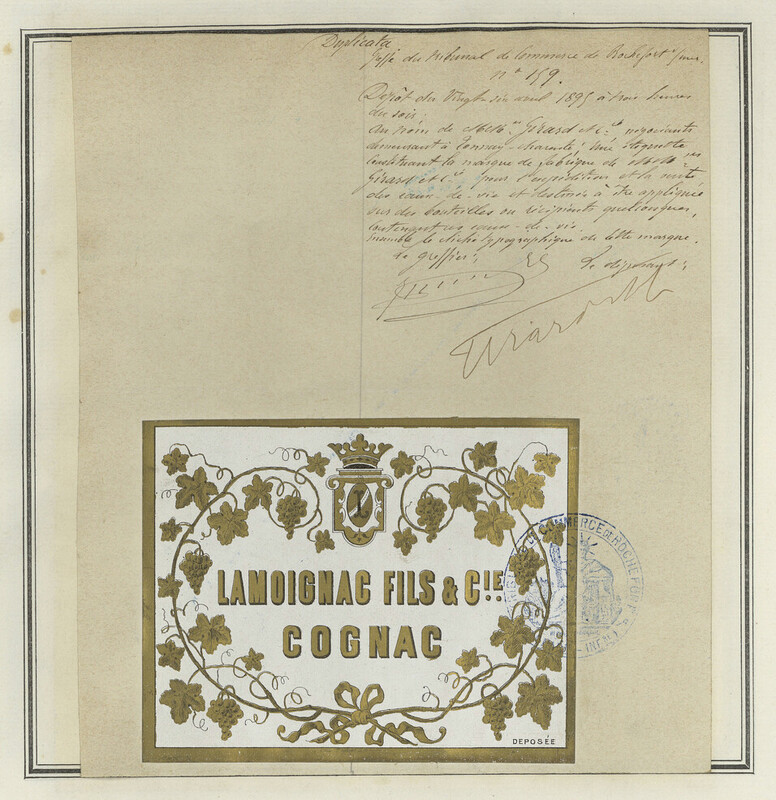 Duplicata
Greffe du tribunal de Commerce de Rochefort s/mer.
n° 159.
Dépôt du Vingt six avril 1895 à trois heures
du soir,
Au nom de MM. Girard et Cie négociants
demeurant à Tonnay-Charente, une étiquette
constituant la marque de fabrique de MM
Girard et Cie pour l'expédition et la vente
des eaux-de-vie et destinée à être appliquée
sur des bouteilles ou récipients quelconques,
contenant ces eaux-de-vie.
Ensemble le cliché typographique de cette marque.
Le greffier: Le déposant:
Girard et Cie
LAMOIGNAC FILS & CIE.
COGNAC
DEPOSÉE
COMMERCE DE ROCHEFORT